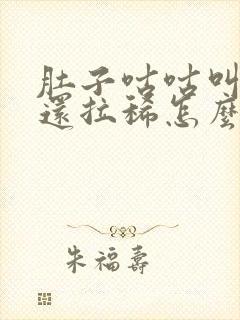 肚子咕咕叫
還拉稀怎麼
朱福壽